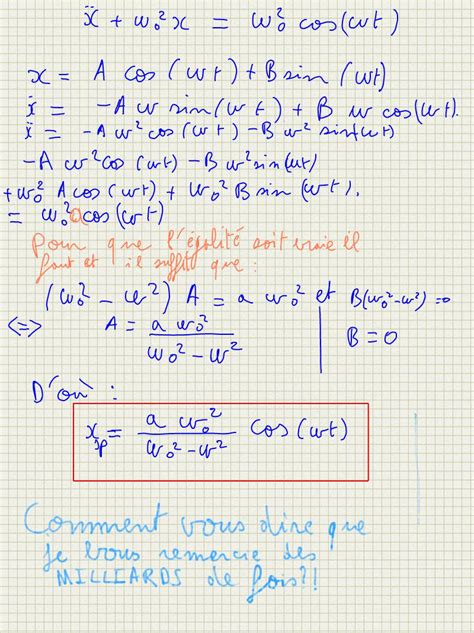 ẍ + ω₀²x = ω₀² cos(ωt)
x = A cos(ωt) + B sin(ωt)
ẋ = -A ω sin(ωt) + B ω cos(ωt).
ẍ = -A ω² cos(ωt) - B ω² sin(ωt)
-A ω² cos(ωt) - B ω² sin(ωt)
+ω₀² A cos(ωt) + ω₀² B sin(ωt).
= ω₀² a cos(ωt)
Pour que l'égalité soit vraie il
faut et il suffit que :
(ω₀² - ω²) A = a ω₀² et B(ω₀²-ω²)=0
<=> A = a ω₀² / (ω₀² - ω²) | B = 0
D'où :
xₚ = a ω₀² / (ω₀² - ω²) cos(ωt)
Comment vous dire que
je vous remercie des
MILLIARDS de fois?!